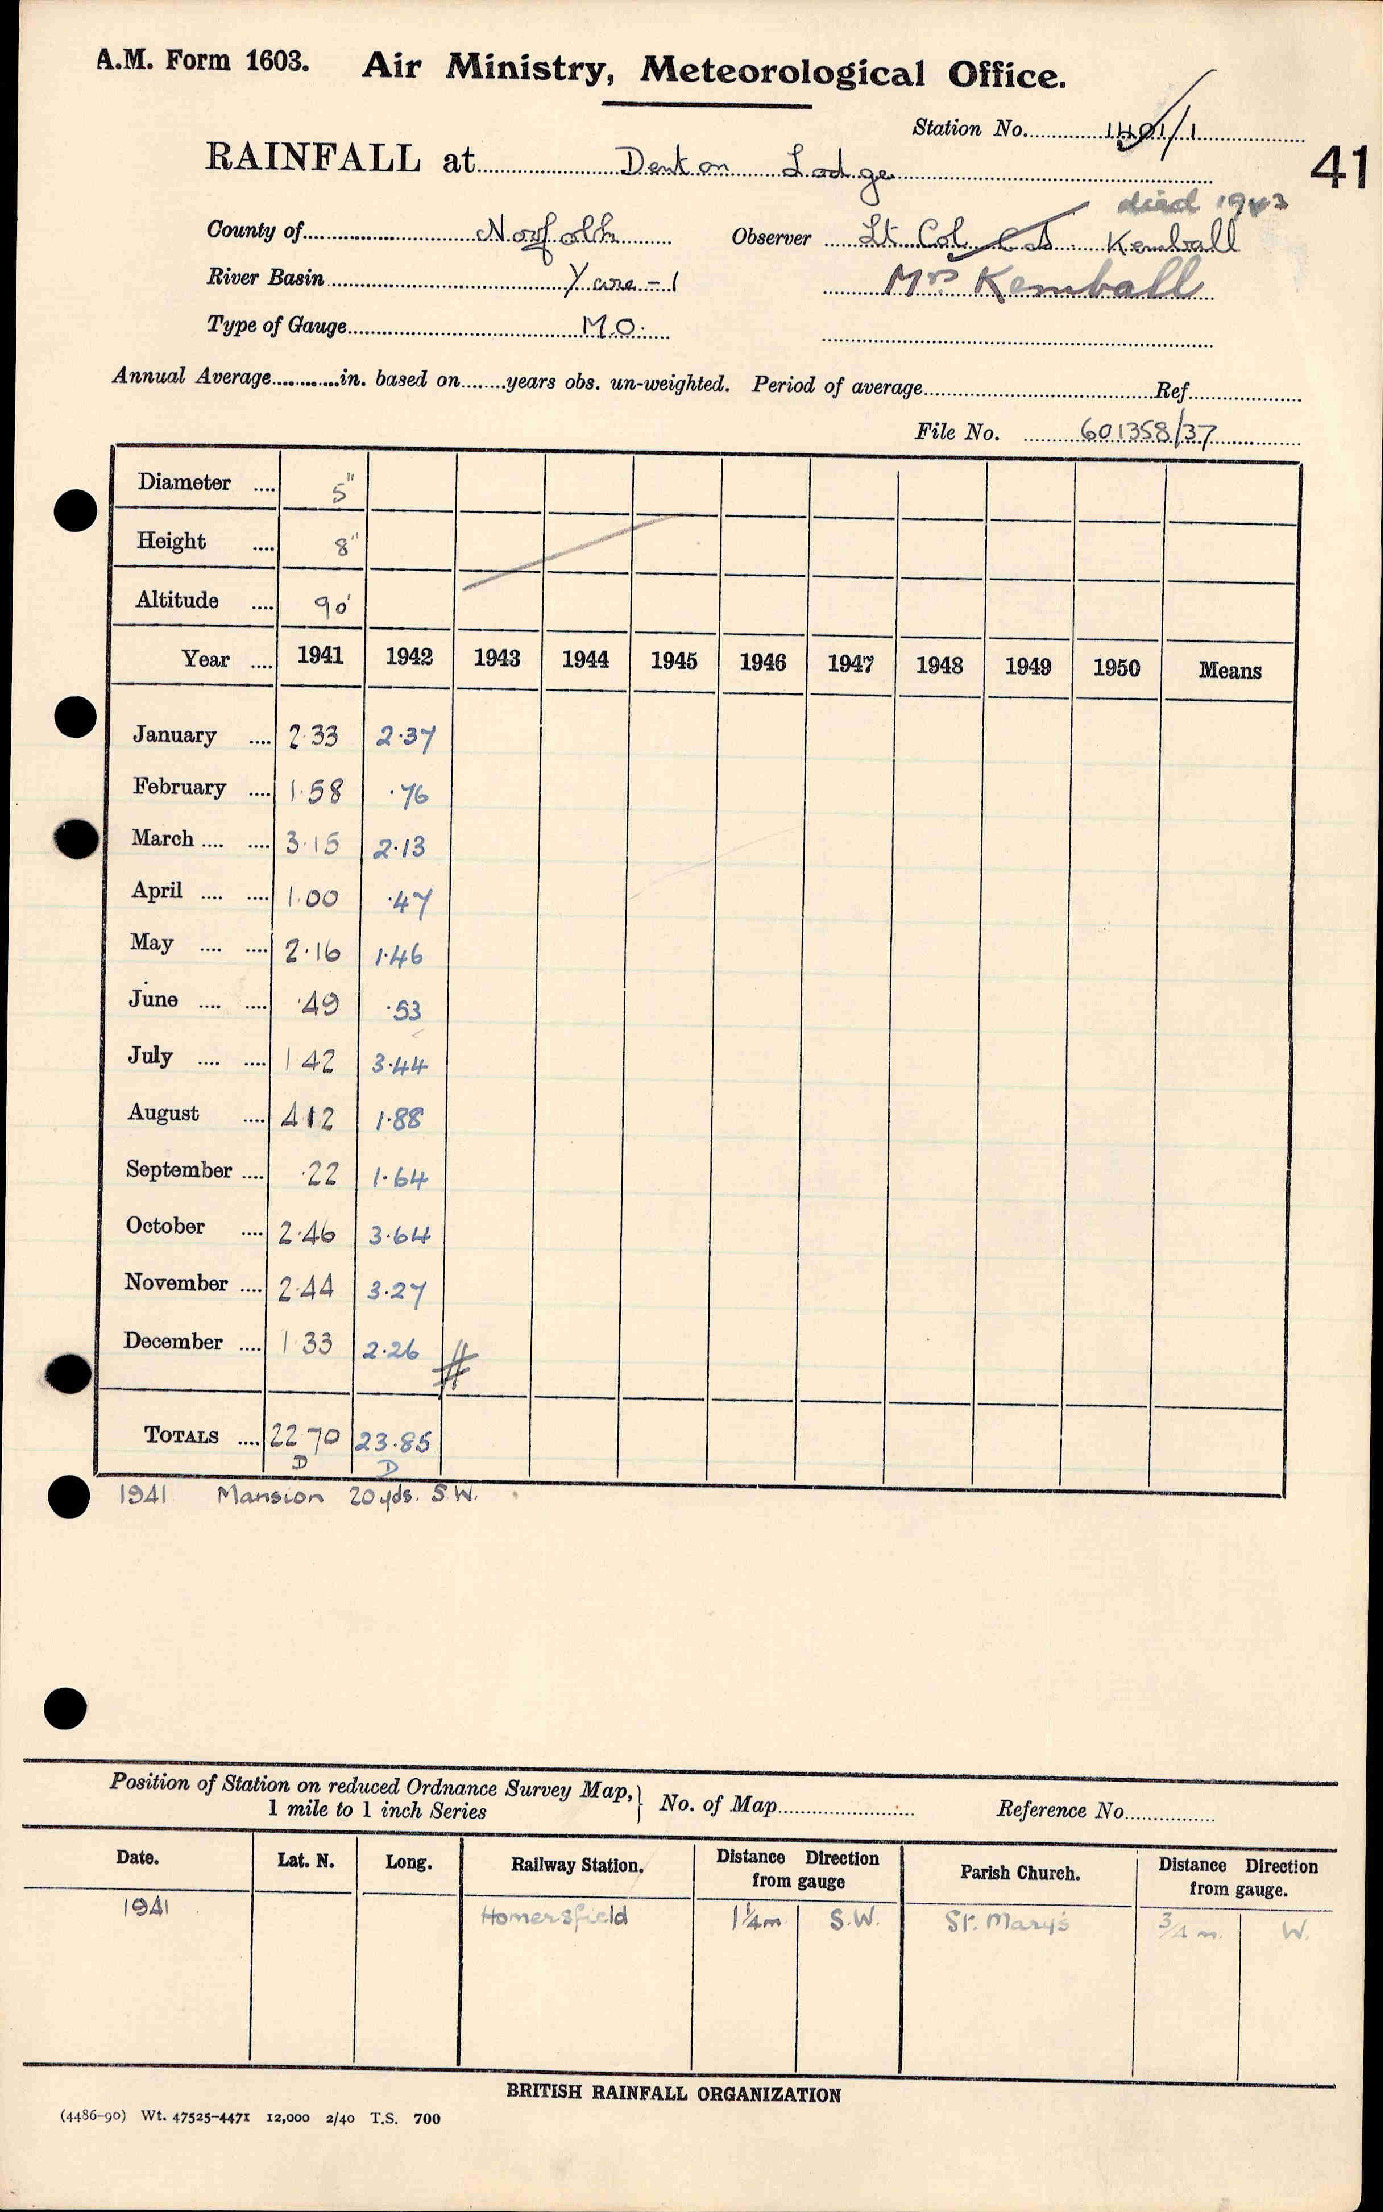 A.M. Form 1603. Air Ministry, Meteorological Office.
Station No. 1401/1
RAINFALL at Denton Lodge
41
died 1943
County of Norfolk Observer Lt Col Kemball
River Basin Yare - 1 Mrs Kemball
Type of Gauge M.O.
Annual Average in. based on years obs. un-weighted. Period of average Ref.
File No. 601358/37
Diameter 5"
Height 8"
Altitude 90'
Year 1941 1942 1943 1944 1945 1946 1947 1948 1949 1950 Means
January 2.33 2.37
February 1.58 .76
March 3.15 2.13
April 1.00 .47
May 2.16 1.46
June .49 .53
July 1.42 3.44
August 4.12 1.88
September .22 1.64
October 2.46 3.64
November 2.44 3.27
December 1.33 2.26 #
TOTALS 22.70 23.85
D D
1941 Mansion 20 yds. S.W.
Position of Station on reduced Ordnance Survey Map, 1 mile to 1 inch Series } No. of Map Reference No.
Date. Lat. N. Long. Railway Station. Distance Direction from gauge Parish Church. Distance Direction from gauge.
1941 Homersfield 1¼m S.W. St. Mary's ¾ m. W.
BRITISH RAINFALL ORGANIZATION
(4486-90) Wt. 47525-4471 12,000 2/40 T.S. 700